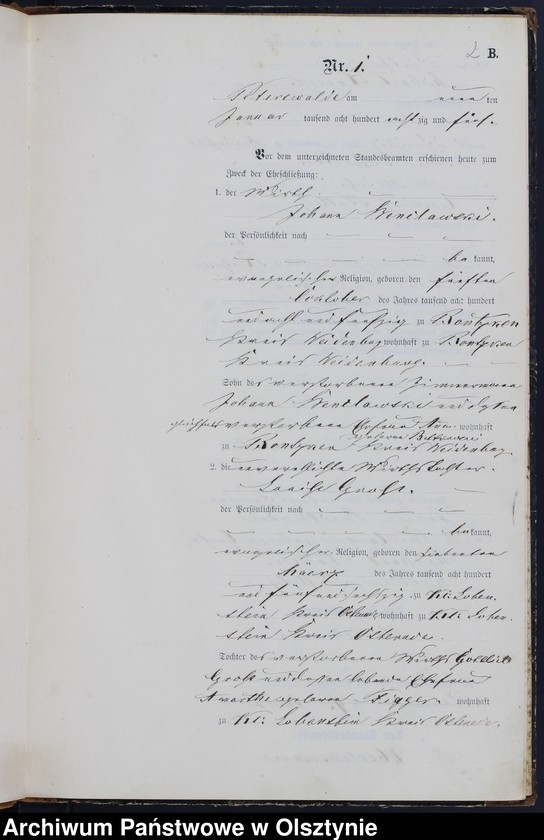 2 B.
Nr. 1.
Peterswalde am neun ten
Januar tausend acht hundert achtzig und fünf.
Vor dem unterzeichneten Standesbeamten erschienen heute zum
Zweck der Eheschließung:
1. der Wirth
Johann
der Persönlichkeit nach
bekannt,
evangelischer Religion, geboren den fünften
October des Jahres tausend acht hundert
acht und fünfzig zu Rontzken
Kreis Neidenburg wohnhaft zu Rontzken
Kreis Neidenburg.
Sohn des verstorbenen Zimmermann
Johann und dessen
verstorbene Ehefrau wohnhaft
geborene
zu Rontzken Kreis Neidenburg
2. die unverehelichte Wirthstochter
Louise Groß.
der Persönlichkeit nach
bekannt,
evangelischer Religion, geboren den siebenten
März des Jahres tausend acht hundert
und fünf und sechszig zu Kl: Lohen-
stein Kreis Osterode, wohnhaft zu Kl: Lohen-
stein Kreis Osterode.
Tochter des verstorbenen Wirths Gottlieb
Groß und dessen lebende Ehefrau
geborene wohnhaft
zu Kl: Lohenstein Kreis Osterode.
Archiwum Państwowe w Olsztynie